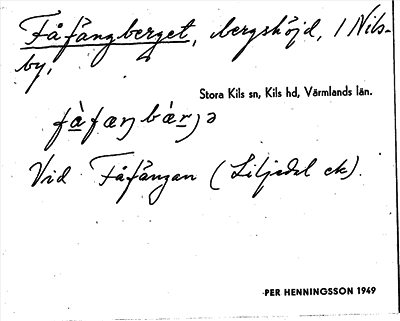 Fåfängberget, bergshöjd, i Nils-
by,
Stora Kils sn, Kils hd, Värmlands län.
fàfæŋbær̀jə
Vid Fåfängan (Liljedal ek).
PER HENNINGSSON 1949